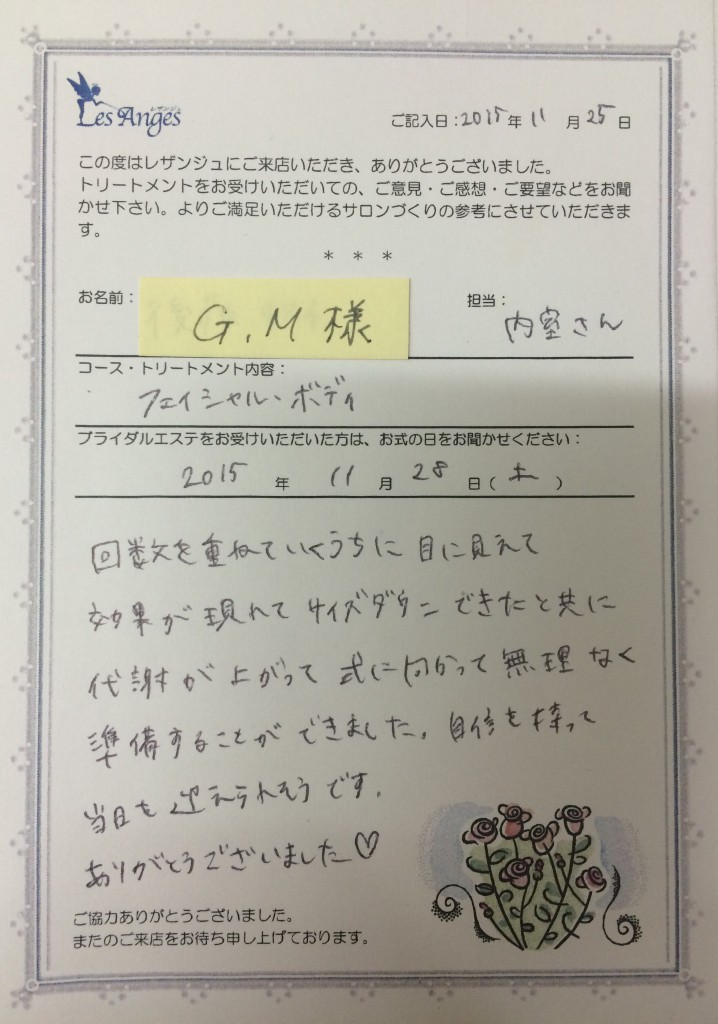 レザンジュ
Les Anges
ご記入日:2015年11月25日
この度はレザンジュにご来店いただき、ありがとうございました。
トリートメントをお受けいただいての、ご意見・ご感想・ご要望などをお聞
かせ下さい。よりご満足いただけるサロンづくりの参考にさせていただきま
す。
* * *
お名前: G.M様 担当: 内室さん
コース・トリートメント内容:
フェイシャル・ボディ
ブライダルエステをお受けいただいた方は、お式の日をお聞かせください:
2015年11月28日(土)
回数を重ねていくうちに目に見えて
効果が現れてサイズダウンできたと共に
代謝が上がって式に向かって無理なく
準備することができました。自信を持って
当日を迎えられそうです。
ありがとうございました♡
ご協力ありがとうございました。
またのご来店をお待ち申し上げております。